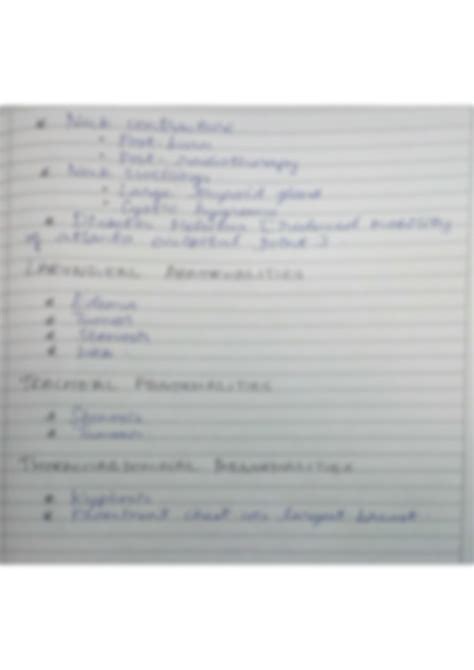 • Neck contracture
• Post burn
• Post-radiotherapy
• Neck swellings
• Large thyroid gland
• Cystic hygroma
• Diabetes Mellitus (reduced mobility
of atlanto occipital joint)
LARYNGEAL ABNORMALITIES
• Edema
• Tumors
• Stenosis
TRACHEAL ABNORMALITIES
• Stenosis
• Tumors
THORACOABDOMINAL ABNORMALITIES
• Kyphosis
• chest or largest breast